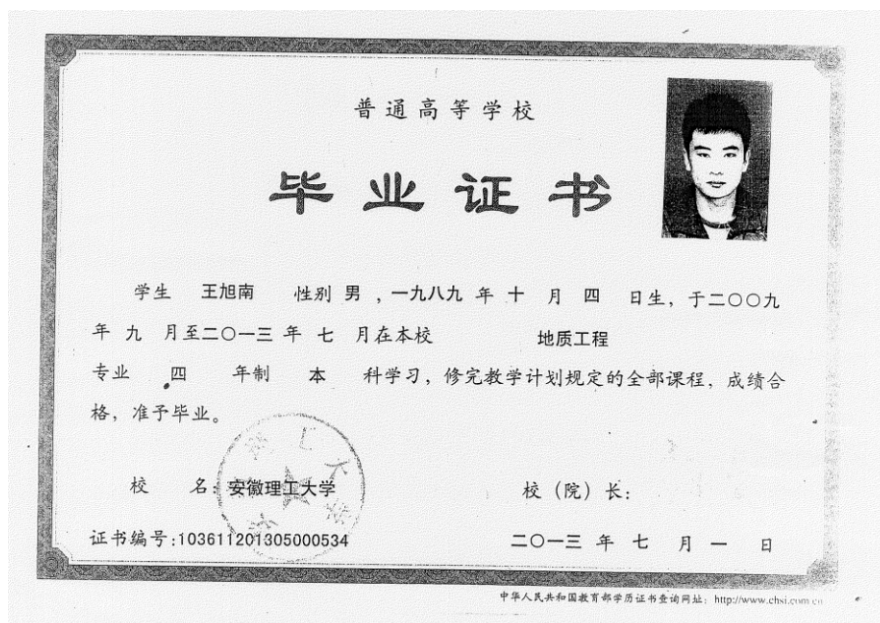 普通高等学校
毕业证书
学生 王旭南 性别 男 ，一九八九 年 十 月 四 日生，于二〇〇九
年 九 月至二〇一三 年 七 月在本校 地质工程
专业 四 年制 本 科学习，修完教学计划规定的全部课程，成绩合
格，准予毕业。
校 名：安徽理工大学
校（院）长：
证书编号：103611201305000534
二〇一三 年 七 月 一 日
中华人民共和国教育部学历证书查询网址：http://www.chsi.com.cn